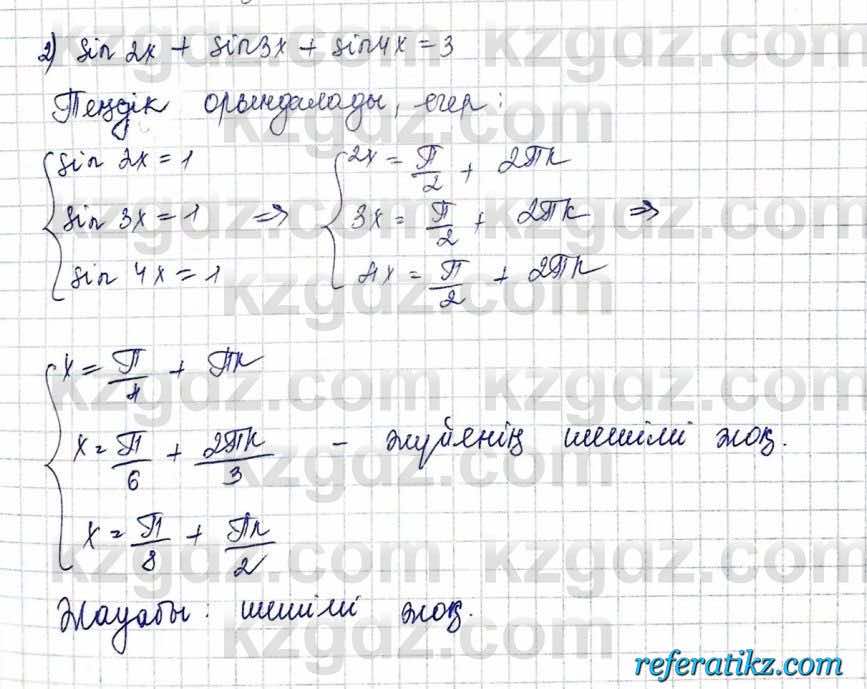 2) sin 2x + sin 3x + sin 4x = 3
Теңдік орындалады, егер:
{ sin 2x = 1
sin 3x = 1
sin 4x = 1
⇒
{ 2x = П/2 + 2Пk
3x = П/2 + 2Пk
4x = П/2 + 2Пk
⇒
{ x = П/4 + Пk
x = П/6 + 2Пk/3
x = П/8 + Пk/2
– жүйенің шешімі жоқ.
Жауабы: шешімі жоқ.
kzgdz.com
referatikz.com